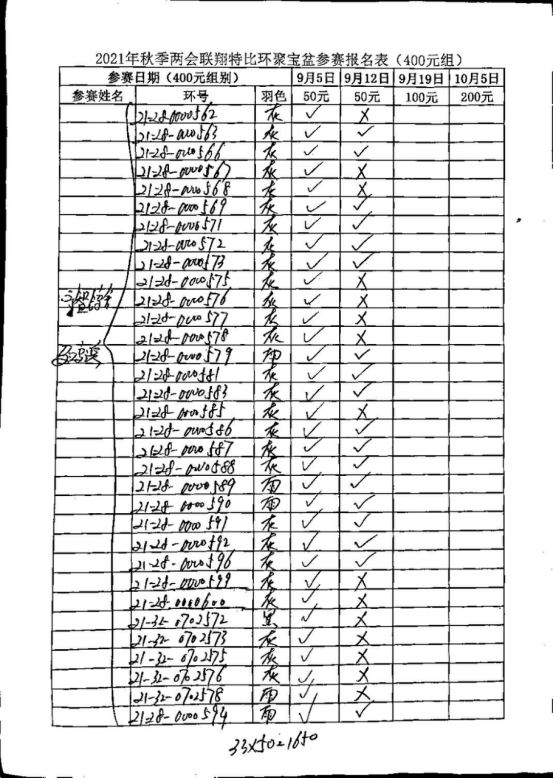 2021年秋季两会联翔特比环聚宝盆参赛报名表（400元组）
参赛日期（400元组别） 9月5日 9月12日 9月19日 10月5日
参赛姓名 环号 羽色 50元 50元 100元 200元
21-28-0000562 灰 ✓ X
21-28-0000563 灰 ✓ ✓
21-28-0000566 灰 ✓ ✓
21-28-0000567 灰 ✓ X
21-28-0000568 灰 ✓ X
21-28-0000569 灰 ✓ ✓
21-28-0000571 灰 ✓ ✓
21-28-0000572 灰 ✓ ✓
21-28-0000573 灰 ✓ ✓
21-28-0000575 灰 ✓ X
21-28-0000576 灰 ✓ X
21-28-0000577 灰 ✓ X
21-28-0000578 灰 ✓ X
21-28-0000579 雨 ✓ ✓
21-28-0000581 灰 ✓ ✓
21-28-0000583 灰 ✓ ✓
21-28-0000585 灰 ✓ X
21-28-0000586 灰 ✓ ✓
21-28-0000587 灰 ✓ ✓
21-28-0000588 灰 ✓ ✓
21-28-0000589 雨 ✓ ✓
21-28-0000590 雨 ✓ ✓
21-28-0000591 灰 ✓ ✓
21-28-0000592 灰 ✓ ✓
21-28-0000596 灰 ✓ ✓
21-28-0000599 灰 ✓ X
21-28-0000600 灰 ✓ X
21-32-0702572 黑 ✓ X
21-32-0702573 灰 ✓ X
21-32-0702575 灰 ✓ X
21-32-0702576 灰 ✓ X
21-32-0702578 雨 ✓ X
21-28-0000594 雨 ✓ ✓
33X50=1650